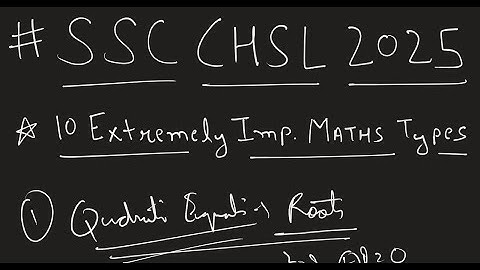 # SSC CHSL 2025
☆ 10 EXTREMELY IMP. MATHS TYPES
① Quadratic Equation → Roots